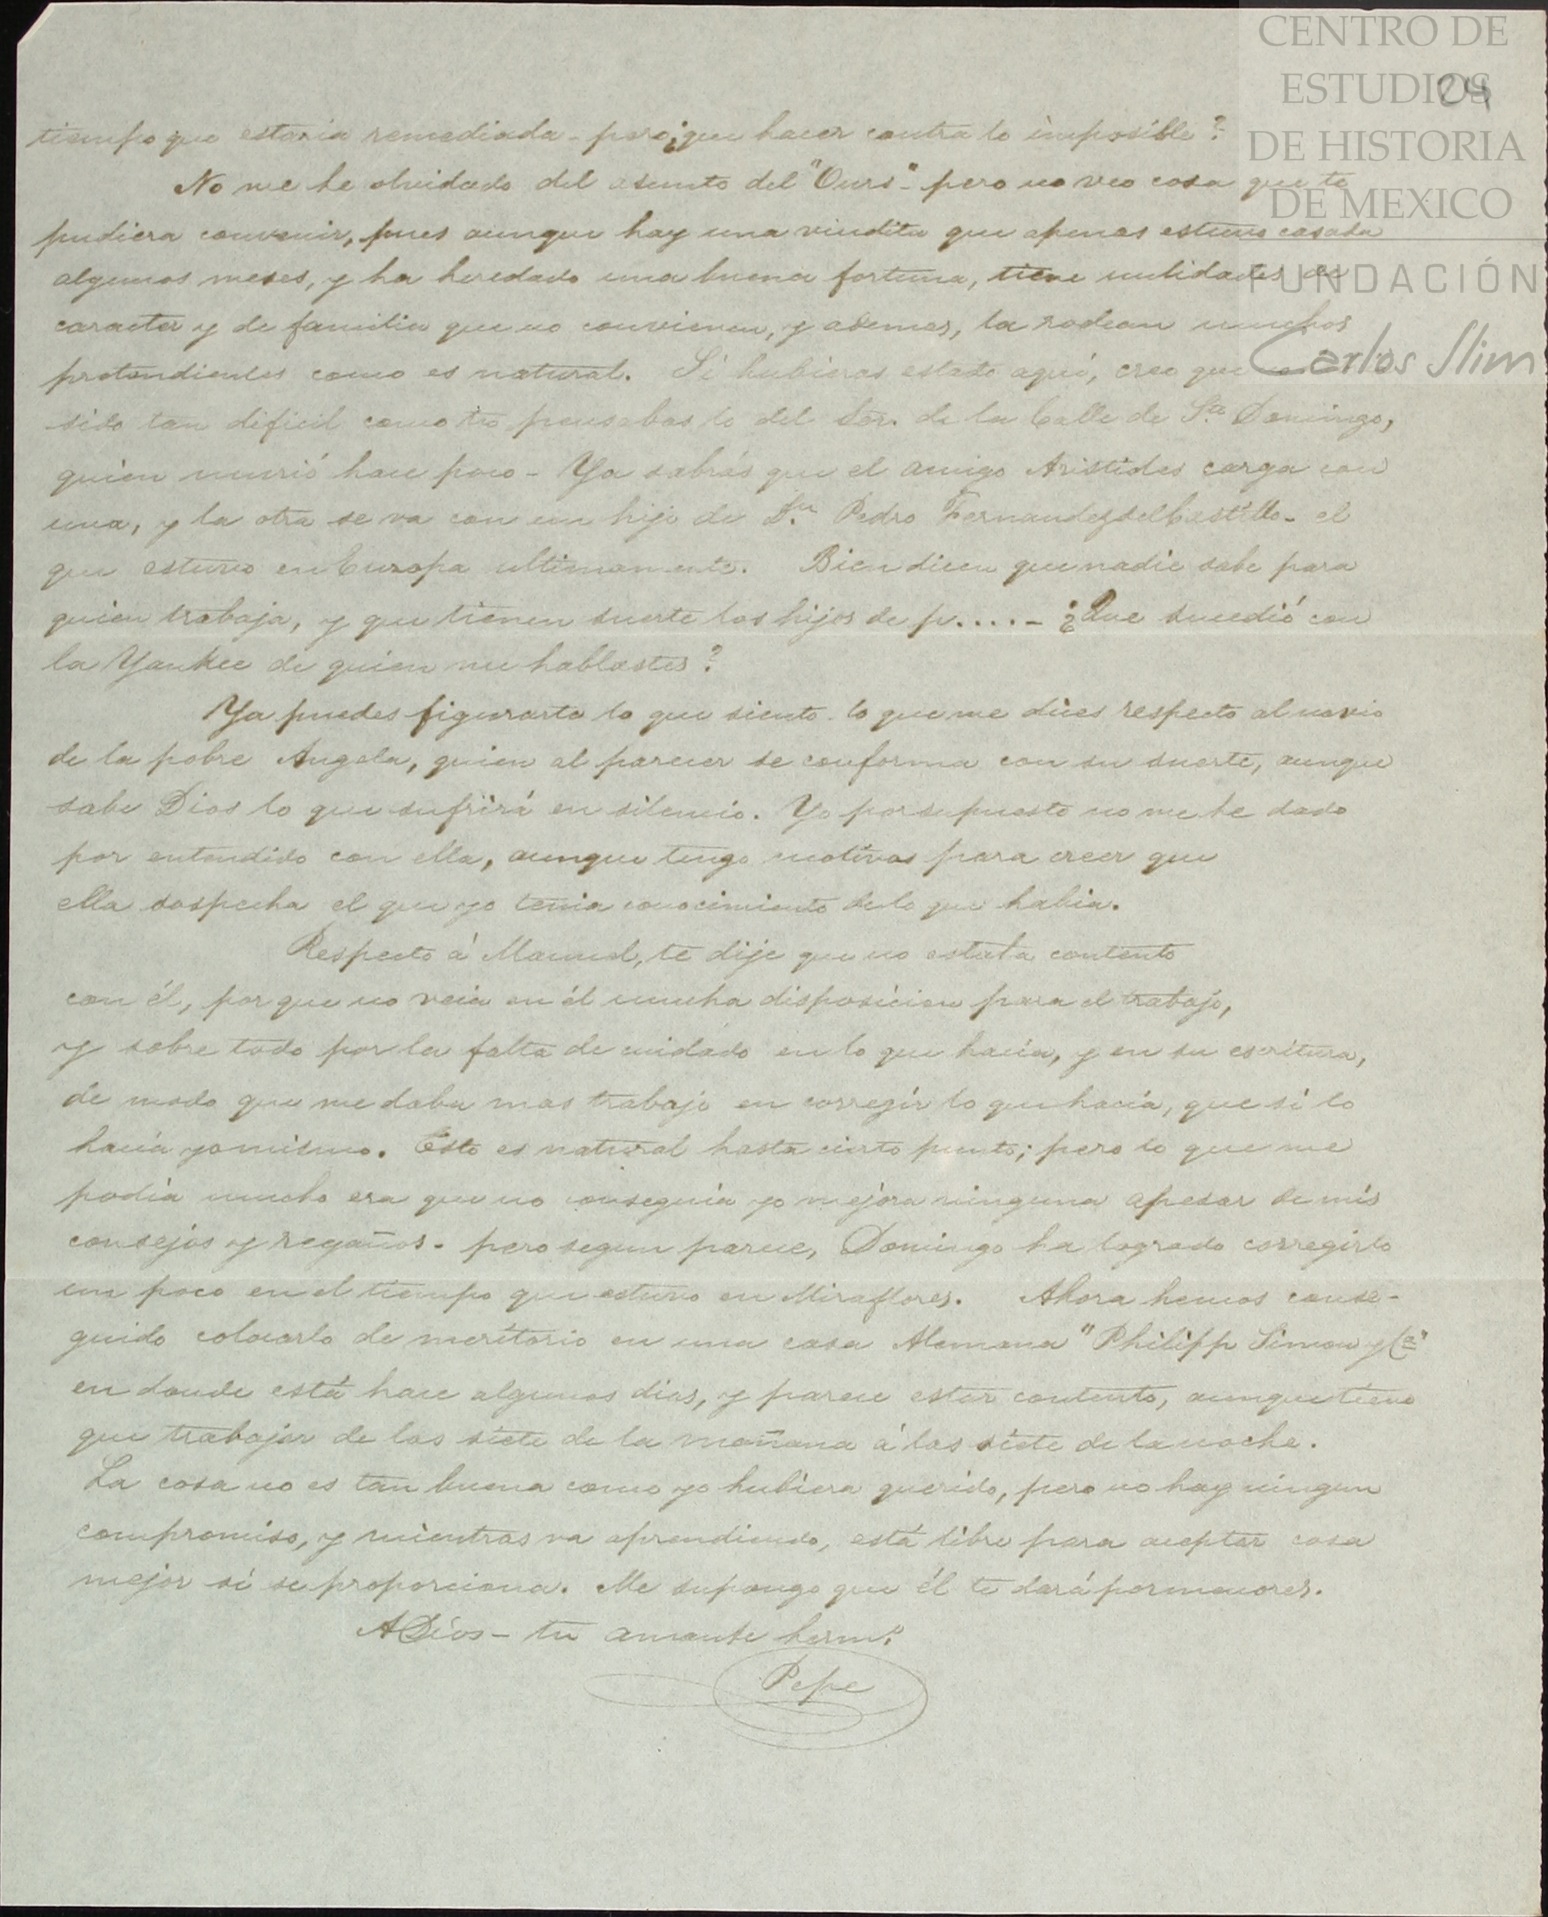 CENTRO DE
ESTUDIOS
DE HISTORIA
DE MEXICO
FUNDACIÓN
Carlos Slim
24
tiempo que estaria remediada - pero ¿que hacer contra lo imposible?
No me he olvidado del asunto del "Ours" - pero no veo cosa que te
pudiera convenir, pues aunque hay una viudita que apenas estuvo casada
algunos meses, y ha heredado una buena fortuna, tiene nulidades de
caracter y de familia que no convienen, y ademas, la rodean muchos
pretendientes como es natural. Si hubieras estado aquí, creo que
sido tan dificil como tu pensabas lo del Sor. de la Calle de Sto. Domingo,
quien murió hace poco - Ya sabrás que el amigo Aristides carga con
una, y la otra se va con un hijo de Dn. Pedro Fernandez del Castillo - el
que estuvo en Europa ultimamente. Bien dicen que nadie sabe para
quien trabaja, y que tienen suerte los hijos de p..... - ¿Que sucedió con
la Yankee de quien me hablastes?
Ya puedes figurarte lo que siento lo que me dices respecto al novio
de la pobre Angela, quien al parecer se conforma con su suerte, aunque
sabe Dios lo que sufrirá en silencio. Yo por supuesto no me he dado
por entendido con ella, aunque tengo motivos para creer que
ella sospecha el que yo tenia conocimiento de lo que habia.
Respecto á Manuel, te dije que no estaba contento
con él, porque no veia en él mucha disposicion para el trabajo,
y sobre todo por la falta de cuidado en lo que hacia, y en su escritura,
de modo que me daba mas trabajo en corregir lo que hacía, que si lo
hacia yo mismo. Esto es natural hasta cierto punto; pero lo que me
podía mucho era que no conseguia yo mejora ninguna apesar de mis
consejos y regaños - pero segun parece, Domingo ha logrado corregirlo
un poco en el tiempo que estuvo en Miraflores. Ahora hemos conse-
guido colocarlo de meritorio en una casa Alemana "Philipp Simon y Ca."
en donde está hace algunos dias, y parece estar contento, aunque tiene
que trabajar de las siete de la mañana á las siete de la noche.
La cosa no es tan buena como yo hubiera querido, pero no hay ningun
compromiso, y mientras va aprendiendo, está libre para aceptar cosa
mejor si se proporciona. Me supongo que él te dará pormenores.
A Dios - tu amante hermo.
Pepe